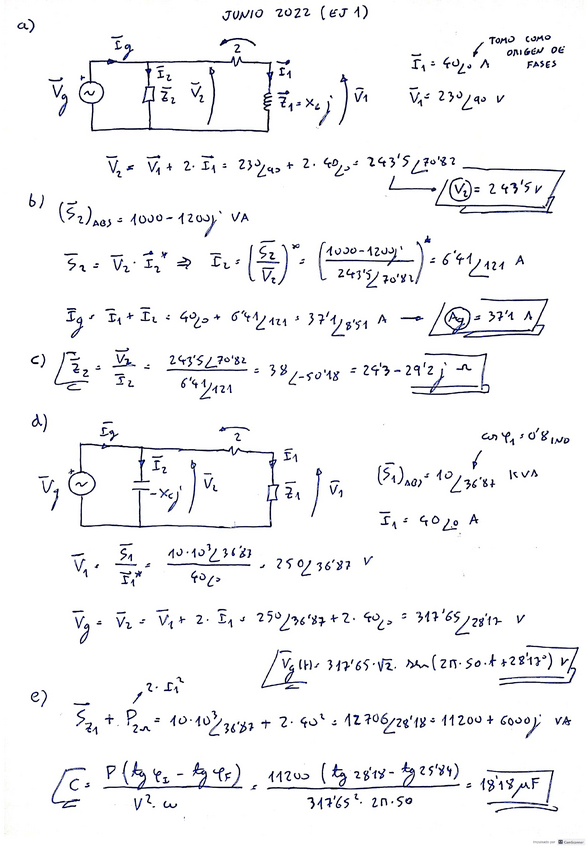 JUNIO 2022 (EJ 1)
a)
I̅g
2
TOMO COMO
ORIGEN DE
FASES
V̅g
+
I̅2
Z̅2
V̅2
I̅1
Z̅1=XL j
V̅1
I̅1 = 40∠0 A
V̅1 = 230∠90 V
V̅2 = V̅1 + 2·I̅1 = 230∠90 + 2·40∠0 = 243'5∠70'82
V2 = 243'5 V
b)
(S̅2)ABS = 1000-1200j VA
S̅2 = V̅2·I̅2* ⇒ I̅2 = (S̅2/V̅2)* = (1000-1200j/243'5∠70'82)* = 6'41∠121 A
I̅g = I̅1 + I̅2 = 40∠0 + 6'41∠121 = 37'1∠8'51 A → Ag = 37'1 A
c)
Z̅2 = V̅2/I̅2 = 243'5∠70'82/6'41∠121 = 38∠-50'18 = 24'3-29'2j Ω
d)
I̅g
2
cos φ1 = 0'8 IND
V̅g
+
I̅2
-Xc j
V̅2
I̅1
Z̅1
V̅1
(S̅1)ABS = 10∠36'87 KVA
I̅1 = 40∠0 A
V̅1 = S̅1/I̅1* = 10·10³∠36'87/40∠0 = 250∠36'87 V
V̅g = V̅2 = V̅1 + 2·I̅1 = 250∠36'87 + 2·40∠0 = 317'65∠28'17 V
V̅g(t) = 317'65·√2·sen(2π·50·t+28'17°) V
e)
2·I1²
S̅Z1 + P2Ω = 10·10³∠36'87 + 2·40² = 12706∠28'18 = 11200 + 6000j VA
C = P(tg φI - tg φF)/V²·ω = 11200 (tg 28'18 - tg 25'84)/317'65²·2π·50 = 18'18 μF